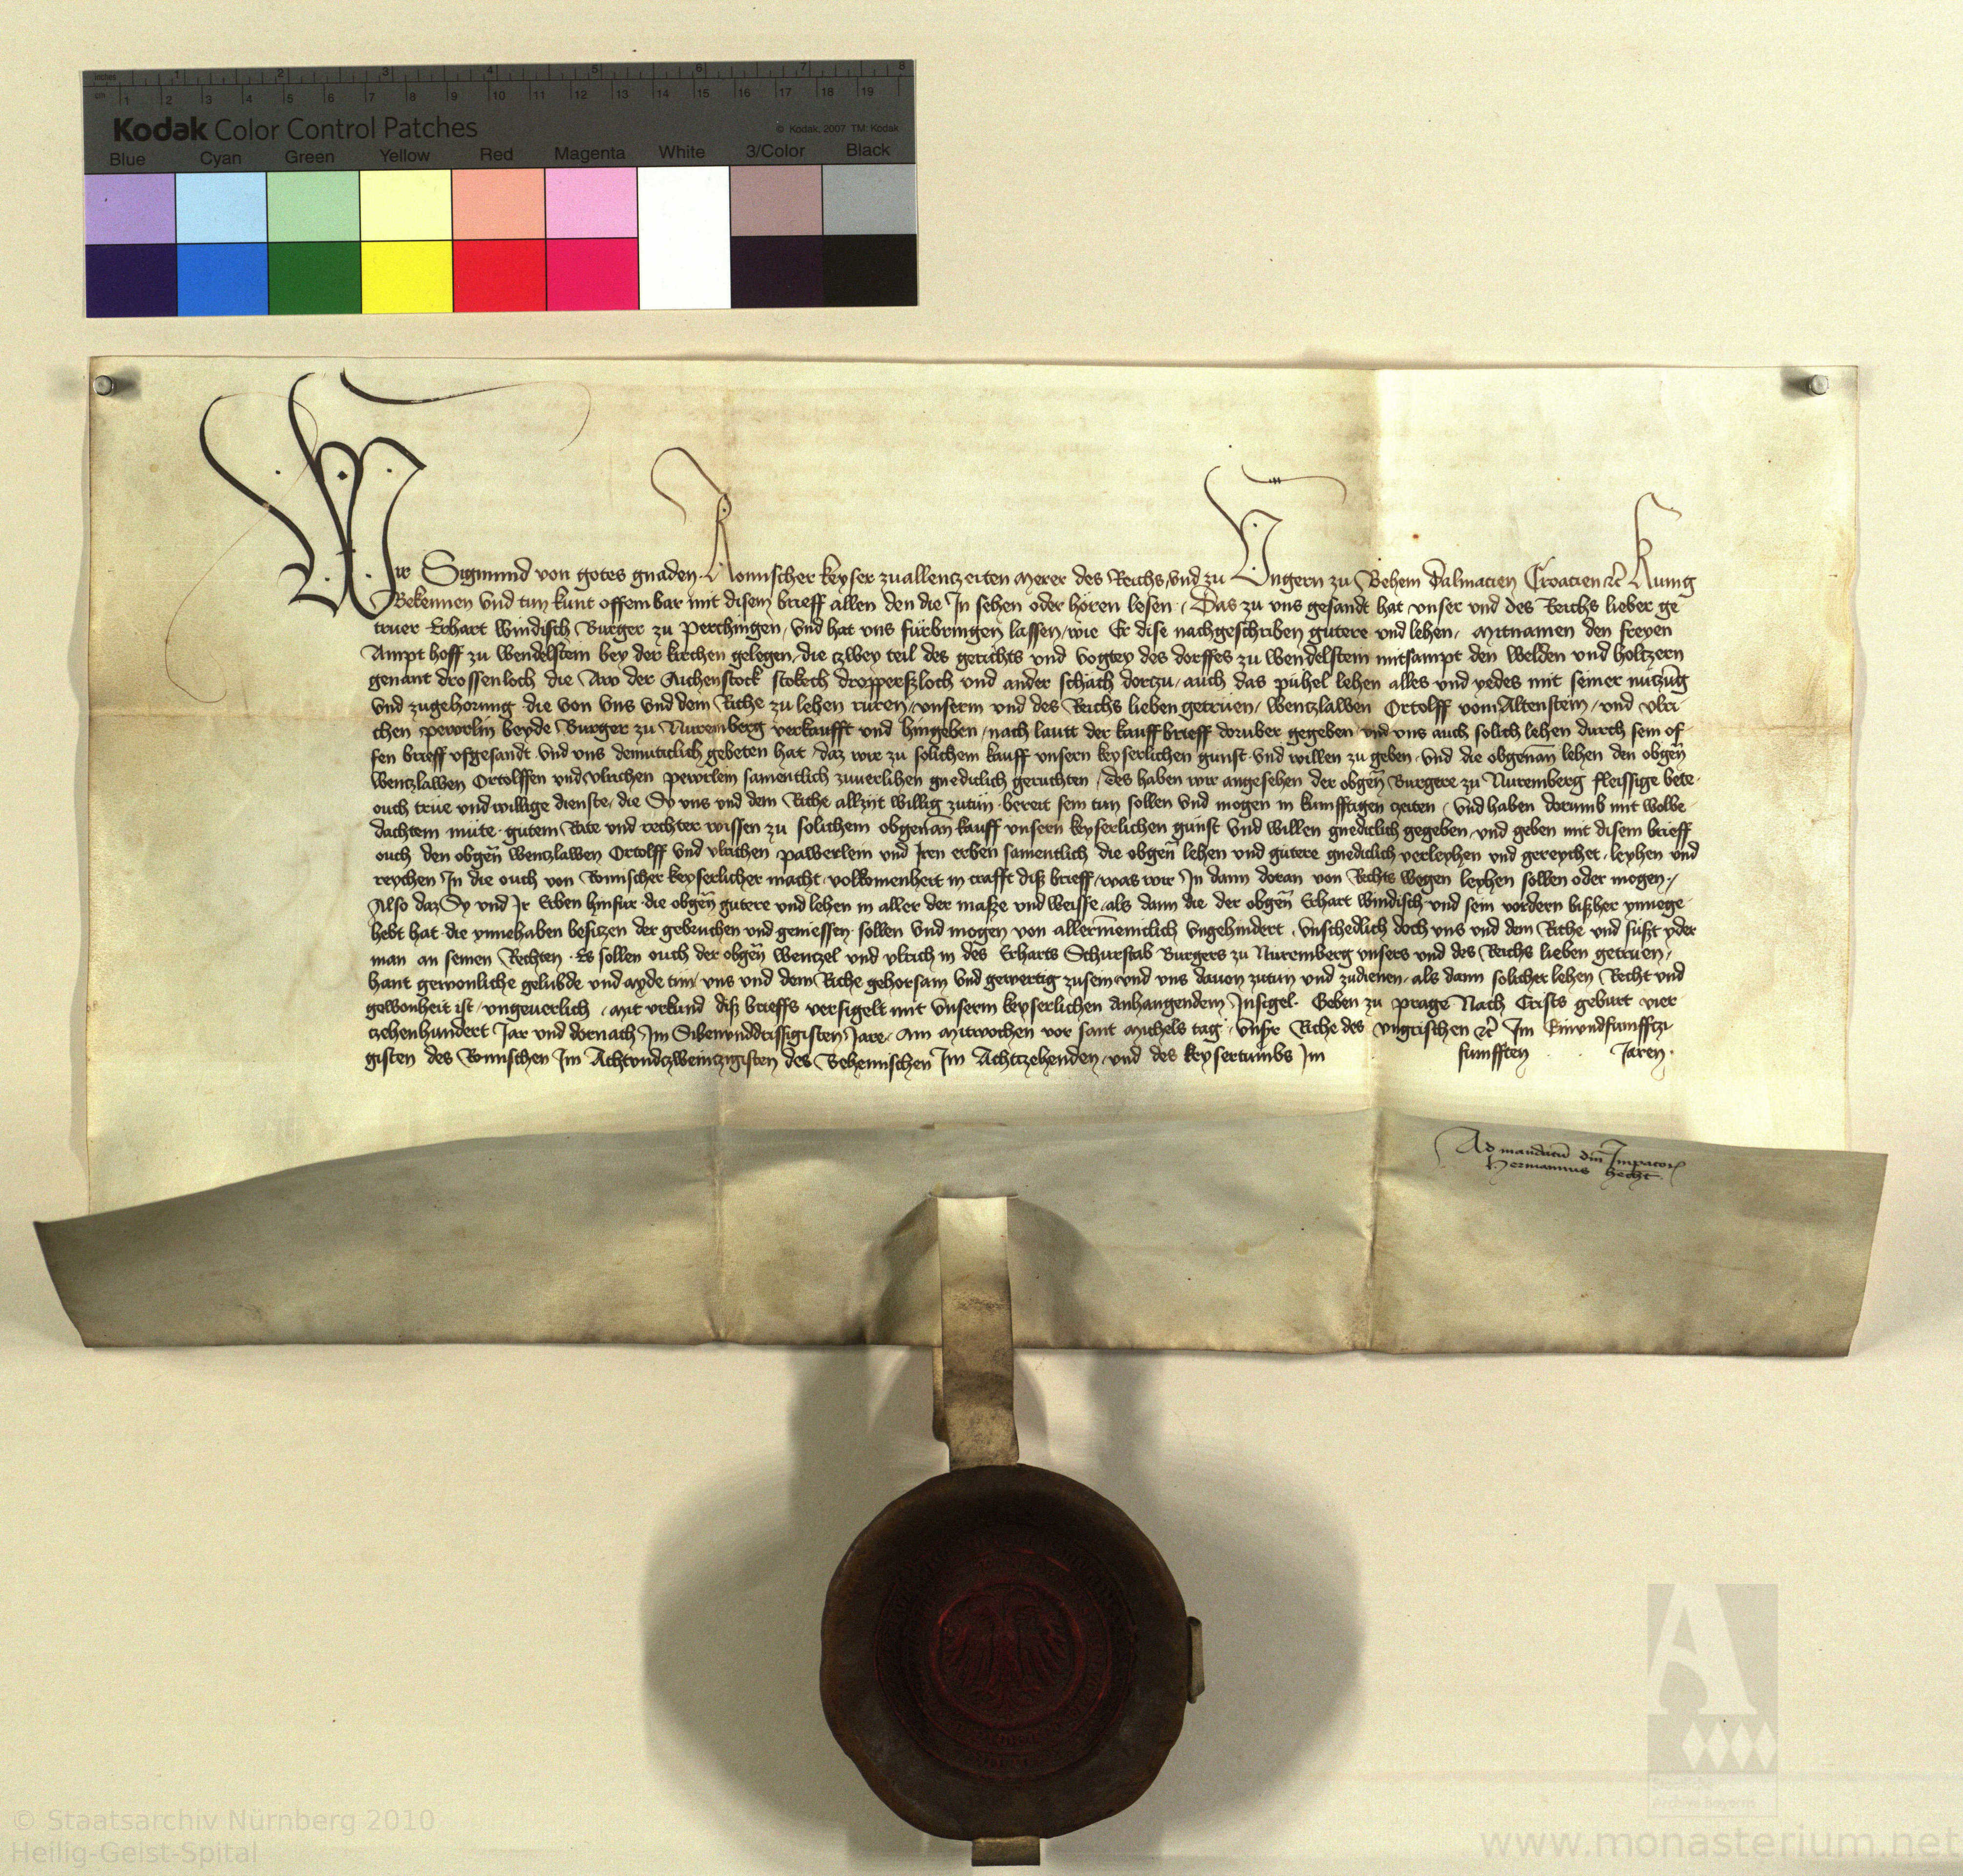 inches 1 2 3 4 5 6 7 8
cm 1 2 3 4 5 6 7 8 9 10 11 12 13 14 15 16 17 18 19
Kodak Color Control Patches © Kodak, 2007 TM: Kodak
Blue Cyan Green Yellow Red Magenta White 3/Color Black
Wir Sigmund von gotes gnaden Romischer keyser zuallenczeiten Merer des Reichs und zu Ungern zu Behem Dalmacien Croacien etc Kunig
Bekennen und tun kunt offembar mit disem brieff allen den die In sehen oder horen lesen Das zu uns gesandt hat unser und des Reichs lieber ge
truer Erhart Windisch Burger zu Perchingen und hat uns fürbringen lassen wie Er dise nachgeschriben gutere und lehen mitnamen den freyen
Ampt hoff zu Wendelstein bey der kirchen gelegen die czwey teil des gerichts und Vogtey des dorffes zu Wendelstein mitsampt den Welden und holtzern
genant drossenloch die Aw der Aichenstock stokech dropperszloch und ander schach dorczu auch das pühel lehen alles und yedes mit seiner nutzūg
und zugehorung die von uns und dem Riche zu lehen rüren unserm und des Reichs lieben getruen Wentzlawen Ortolff vom Altenstein und Ulri
chen pewrlin beyde Burger zu Nuremberg verkaufft und hingeben nach lautt der kauffbrieff doruber gegeben und uns auch solich lehen durch sein of
fen brieff ufgesandt und uns demuticlich gebeten hat daz wir zu solichem kauff unsern keyserlichen gunst und willen zu geben und die obgenan̄ lehen den obgen̄
Wentzlawen Ortolffen und Ulrichen pewrlein samentlich zuuerlihen gnediclich geruchten des haben wir angesehen der obgen̄ Burgere zu Nuremberg fleissige bete
ouch true und willige dienste die Sy uns und dem Riche allzyt willig zutun bereit sein tun sollen und mogen in kunfftigen czeiten und haben dorumb mit wolbe
dachtem mute gutem Rate und rechter wissen zu solichem obgenan̄ kauff unsern keyserlichen gunst und willen gnediclich gegeben und geben mit disem brieff
ouch den obgen̄ Wentzlawen Ortolff und Ulrichen pawerlein und Iren erben samentlich die obgen̄ lehen und gutere gnediclich verleyhen und gereychet leyhen und
reychen In die ouch von Romischer keyserlicher macht volkomenheit in crafft disz brieff was wir In dann doran von Rechts wegen leyhen sollen oder mogen
Also daz Sy und Ir Erben hinfur die obgen̄ gutere und lehen in aller der masze und weisse als dann die der obgen̄ Erhart Windisch und sein vordern biszher ynnege
hebt hat die ynnehaben besitzen der gebruchen und geniessen sollen und mogen von allermeniclich ungehindert unschedlich doch uns und dem Riche und süszt yder
man an seinen Rechten Es sollen ouch der obgen̄ Wentzel und Ulrich in des Erharts Schurstab Burgers zu Nuremberg unsers und des Reichs lieben getruen
hant gewonliche gelubde und ayde tun uns und dem Riche gehorsam und gewertig zusein und uns dauon zutun und zudienen als dann solicher lehen Recht und
gewonheit ist ungeuerlich Mit urkund disz brieffs versigelt mit unserm keyserlichen anhangendem Insigel Geben zu Prage Nach Crists geburt vier
czehenhundert Jar und dornach Im Sibenunddrissigisten Jare Am Mitwochen vor sant Michels tag Unsr̄ Riche des Ungrischen etc Im Einundfunffczi
gisten des Romischen Im Achtundczweinczigisten des Behemischen Im Achtczehenden und des keysertumbs Im funfften Jaren
Ad mandatū dn̄i Impatoris
Hermannus Hecht
© Staatsarchiv Nürnberg 2010
Heilig-Geist-Spital
www.monasterium.net